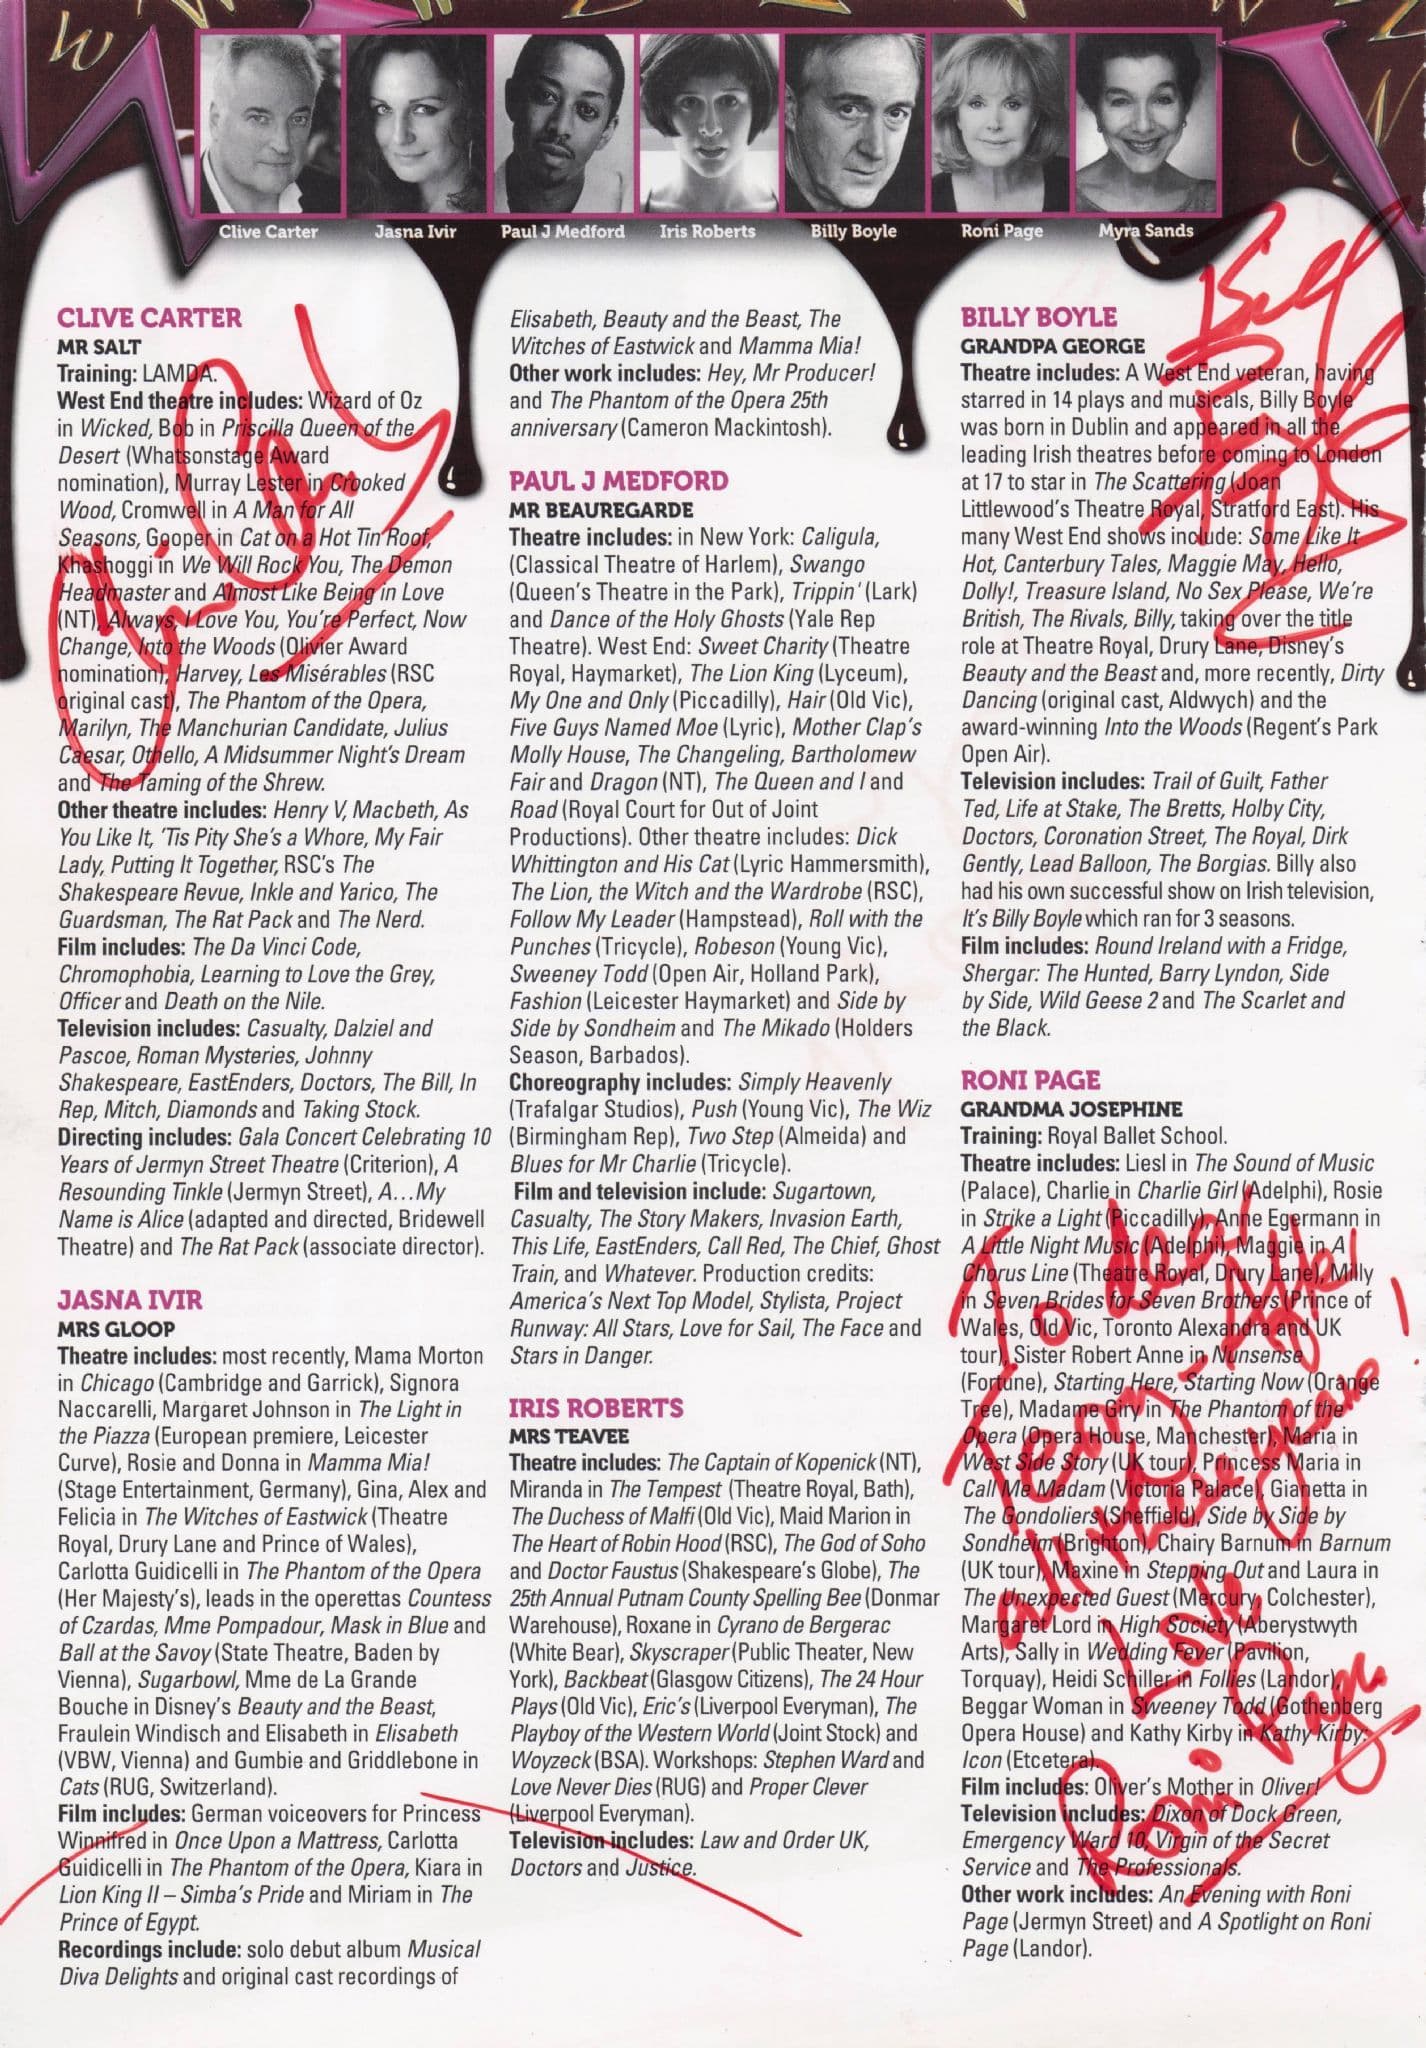 Clive Carter
Jasna Ivir
Paul J Medford
Iris Roberts
Billy Boyle
Roni Page
Myra Sands
CLIVE CARTER
MR SALT
Training: LAMDA.
West End theatre includes: Wizard of Oz
in Wicked, Bob in Priscilla Queen of the
Desert (Whatsonstage Award
nomination), Murray Lester in Crooked
Wood, Cromwell in A Man for All
Seasons, Gooper in Cat on a Hot Tin Roof,
Khashoggi in We Will Rock You, The Demon
Headmaster and Almost Like Being in Love
(NT), Always, I Love You, You're Perfect, Now
Change, Into the Woods (Olivier Award
nomination), Harvey, Les Misérables (RSC
original cast), The Phantom of the Opera,
Marilyn, The Manchurian Candidate, Julius
Caesar, Othello, A Midsummer Night's Dream
and The Taming of the Shrew.
Other theatre includes: Henry V, Macbeth, As
You Like It, 'Tis Pity She's a Whore, My Fair
Lady, Putting It Together, RSC's The
Shakespeare Revue, Inkle and Yarico, The
Guardsman, The Rat Pack and The Nerd.
Film includes: The Da Vinci Code,
Chromophobia, Learning to Love the Grey,
Officer and Death on the Nile.
Television includes: Casualty, Dalziel and
Pascoe, Roman Mysteries, Johnny
Shakespeare, EastEnders, Doctors, The Bill, In
Rep, Mitch, Diamonds and Taking Stock.
Directing includes: Gala Concert Celebrating 10
Years of Jermyn Street Theatre (Criterion), A
Resounding Tinkle (Jermyn Street), A...My
Name is Alice (adapted and directed, Bridewell
Theatre) and The Rat Pack (associate director).
JASNA IVIR
MRS GLOOP
Theatre includes: most recently, Mama Morton
in Chicago (Cambridge and Garrick), Signora
Naccarelli, Margaret Johnson in The Light in
the Piazza (European premiere, Leicester
Curve), Rosie and Donna in Mamma Mia!
(Stage Entertainment, Germany), Gina, Alex and
Felicia in The Witches of Eastwick (Theatre
Royal, Drury Lane and Prince of Wales),
Carlotta Guidicelli in The Phantom of the Opera
(Her Majesty's), leads in the operettas Countess
of Czardas, Mme Pompadour, Mask in Blue and
Ball at the Savoy (State Theatre, Baden by
Vienna), Sugarbowl, Mme de La Grande
Bouche in Disney's Beauty and the Beast,
Fraulein Windisch and Elisabeth in Elisabeth
(VBW, Vienna) and Gumbie and Griddlebone in
Cats (RUG, Switzerland).
Film includes: German voiceovers for Princess
Winnifred in Once Upon a Mattress, Carlotta
Guidicelli in The Phantom of the Opera, Kiara in
Lion King II – Simba's Pride and Miriam in The
Prince of Egypt.
Recordings include: solo debut album Musical
Diva Delights and original cast recordings of
Elisabeth, Beauty and the Beast, The
Witches of Eastwick and Mamma Mia!
Other work includes: Hey, Mr Producer!
and The Phantom of the Opera 25th
anniversary (Cameron Mackintosh).
PAUL J MEDFORD
MR BEAUREGARDE
Theatre includes: in New York: Caligula,
(Classical Theatre of Harlem), Swango
(Queen's Theatre in the Park), Trippin' (Lark)
and Dance of the Holy Ghosts (Yale Rep
Theatre). West End: Sweet Charity (Theatre
Royal, Haymarket), The Lion King (Lyceum),
My One and Only (Piccadilly), Hair (Old Vic),
Five Guys Named Moe (Lyric), Mother Clap's
Molly House, The Changeling, Bartholomew
Fair and Dragon (NT), The Queen and I and
Road (Royal Court for Out of Joint
Productions). Other theatre includes: Dick
Whittington and His Cat (Lyric Hammersmith),
The Lion, the Witch and the Wardrobe (RSC),
Follow My Leader (Hampstead), Roll with the
Punches (Tricycle), Robeson (Young Vic),
Sweeney Todd (Open Air, Holland Park),
Fashion (Leicester Haymarket) and Side by
Side by Sondheim and The Mikado (Holders
Season, Barbados).
Choreography includes: Simply Heavenly
(Trafalgar Studios), Push (Young Vic), The Wiz
(Birmingham Rep), Two Step (Almeida) and
Blues for Mr Charlie (Tricycle).
Film and television include: Sugartown,
Casualty, The Story Makers, Invasion Earth,
This Life, EastEnders, Call Red, The Chief, Ghost
Train, and Whatever. Production credits:
America's Next Top Model, Stylista, Project
Runway: All Stars, Love for Sail, The Face and
Stars in Danger.
IRIS ROBERTS
MRS TEAVEE
Theatre includes: The Captain of Kopenick (NT),
Miranda in The Tempest (Theatre Royal, Bath),
The Duchess of Malfi (Old Vic), Maid Marion in
The Heart of Robin Hood (RSC), The God of Soho
and Doctor Faustus (Shakespeare's Globe), The
25th Annual Putnam County Spelling Bee (Donmar
Warehouse), Roxane in Cyrano de Bergerac
(White Bear), Skyscraper (Public Theater, New
York), Backbeat (Glasgow Citizens), The 24 Hour
Plays (Old Vic), Eric's (Liverpool Everyman), The
Playboy of the Western World (Joint Stock) and
Woyzeck (BSA). Workshops: Stephen Ward and
Love Never Dies (RUG) and Proper Clever
(Liverpool Everyman).
Television includes: Law and Order UK,
Doctors and Justice.
BILLY BOYLE
GRANDPA GEORGE
Theatre includes: A West End veteran, having
starred in 14 plays and musicals, Billy Boyle
was born in Dublin and appeared in all the
leading Irish theatres before coming to London
at 17 to star in The Scattering (Joan
Littlewood's Theatre Royal, Stratford East). His
many West End shows include: Some Like It
Hot, Canterbury Tales, Maggie May, Hello,
Dolly!, Treasure Island, No Sex Please, We're
British, The Rivals, Billy, taking over the title
role at Theatre Royal, Drury Lane, Disney's
Beauty and the Beast and, more recently, Dirty
Dancing (original cast, Aldwych) and the
award-winning Into the Woods (Regent's Park
Open Air).
Television includes: Trail of Guilt, Father
Ted, Life at Stake, The Bretts, Holby City,
Doctors, Coronation Street, The Royal, Dirk
Gently, Lead Balloon, The Borgias. Billy also
had his own successful show on Irish television,
It's Billy Boyle which ran for 3 seasons.
Film includes: Round Ireland with a Fridge,
Shergar: The Hunted, Barry Lyndon, Side
by Side, Wild Geese 2 and The Scarlet and
the Black.
RONI PAGE
GRANDMA JOSEPHINE
Training: Royal Ballet School.
Theatre includes: Liesl in The Sound of Music
(Palace), Charlie in Charlie Girl (Adelphi), Rosie
in Strike a Light (Piccadilly), Anne Egermann in
A Little Night Music (Adelphi), Maggie in A
Chorus Line (Theatre Royal, Drury Lane), Milly
in Seven Brides for Seven Brothers (Prince of
Wales, Old Vic, Toronto Alexandra and UK
tour), Sister Robert Anne in Nunsense
(Fortune), Starting Here, Starting Now (Orange
Tree), Madame Giry in The Phantom of the
Opera (Opera House, Manchester), Maria in
West Side Story (UK tour), Princess Maria in
Call Me Madam (Victoria Palace), Gianetta in
The Gondoliers (Sheffield), Side by Side by
Sondheim (Brighton), Chairy Barnum in Barnum
(UK tour), Maxine in Stepping Out and Laura in
The Unexpected Guest (Mercury, Colchester),
Margaret Lord in High Society (Aberystwyth
Arts), Sally in Wedding Fever (Pavilion,
Torquay), Heidi Schiller in Follies (Landor),
Beggar Woman in Sweeney Todd (Gothenberg
Opera House) and Kathy Kirby in Kathy Kirby:
Icon (Etcetera).
Film includes: Oliver's Mother in Oliver!
Television includes: Dixon of Dock Green,
Emergency Ward 10, Virgin of the Secret
Service and The Professionals.
Other work includes: An Evening with Roni
Page (Jermyn Street) and A Spotlight on Roni
Page (Landor).
To dear
- After
all these years!
Love
Roni Page